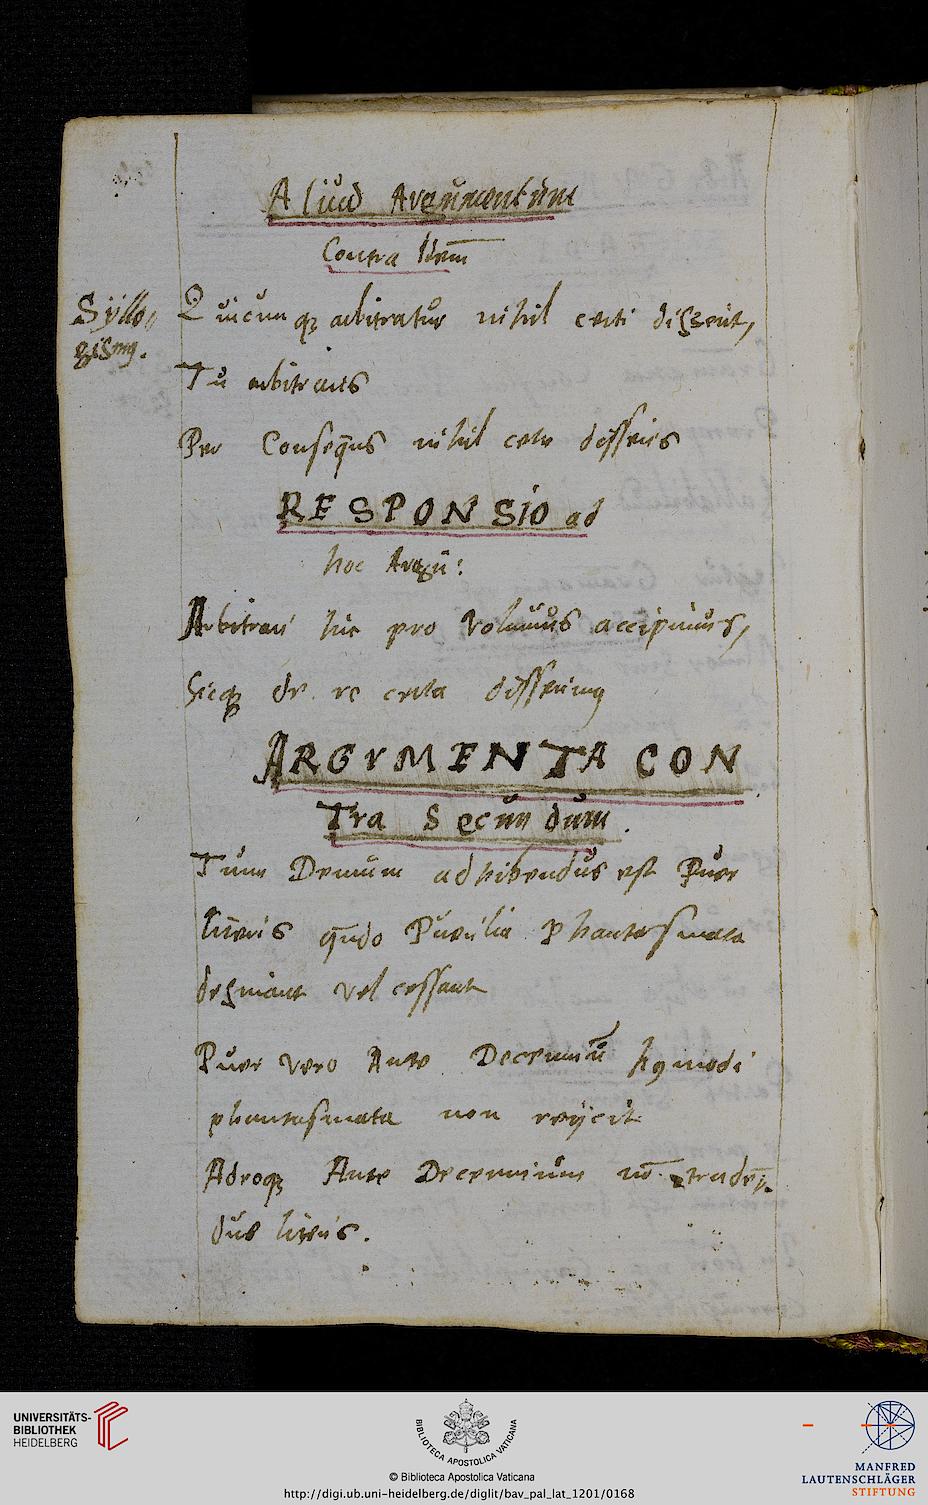 Aliud Argumentum
Contra Idem
Syllo,
gismꝰ.
Quicunqꝫ arbitratur nihil certi disserit,
Tu arbitraris
Per Conseqūs nihil certe disseris
RESPONSIO ad
hoc Argū:
Arbitrari hic pro Volumus accipimus,
Sicqꝫ de re certa disserimꝰ
ARGVMENTA CON
Tra Secundum.
Tum Demum adhibendus est Puer
literis qndo Puerilia Phantasmata
desinant vel cessant
Puer vero Ante Decenniū hꝰmodi
phantasmata non reijcit
Adeoqꝫ Ante Decennium nō traden
dus literis.
UNIVERSITÄTS-
BIBLIOTHEK
HEIDELBERG
BIBLIOTECA APOSTOLICA VATICANA
© Biblioteca Apostolica Vaticana
http://digi.ub.uni-heidelberg.de/diglit/bav_pal_lat_1201/0168
MANFRED
LAUTENSCHLÄGER
STIFTUNG